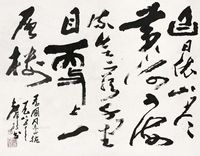 白日依山尽
黄河入海
流欲穷千里
目更上一
层楼